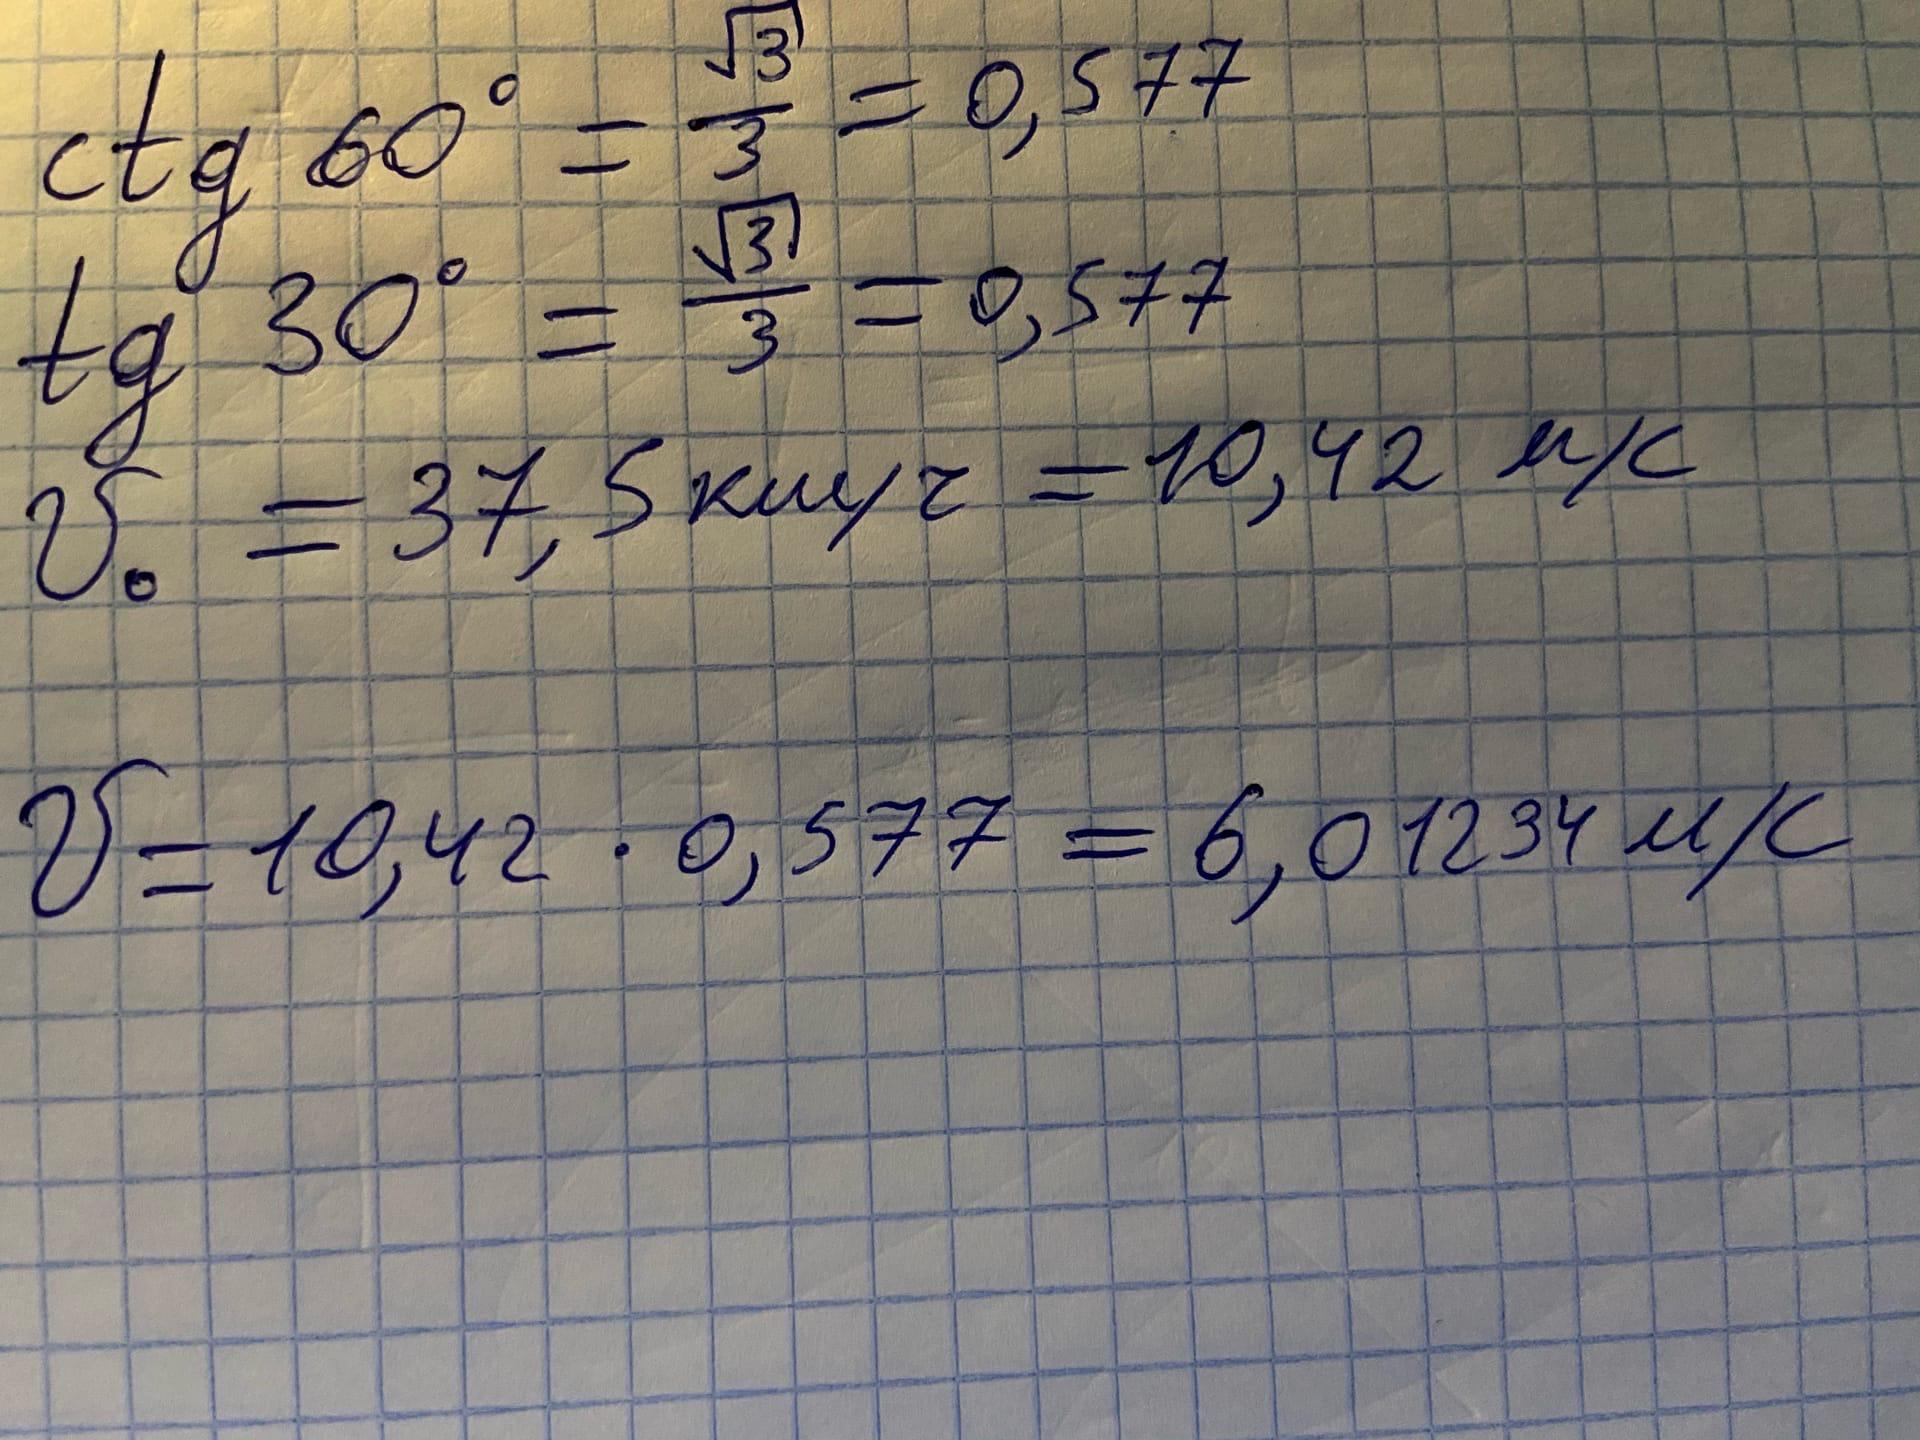 ctg 60° = √3/3 = 0,577
tg 30° = √3/3 = 0,577
v₀ = 37,5 км/ч = 10,42 м/с
v = 10,42 · 0,577 = 6,01234 м/с